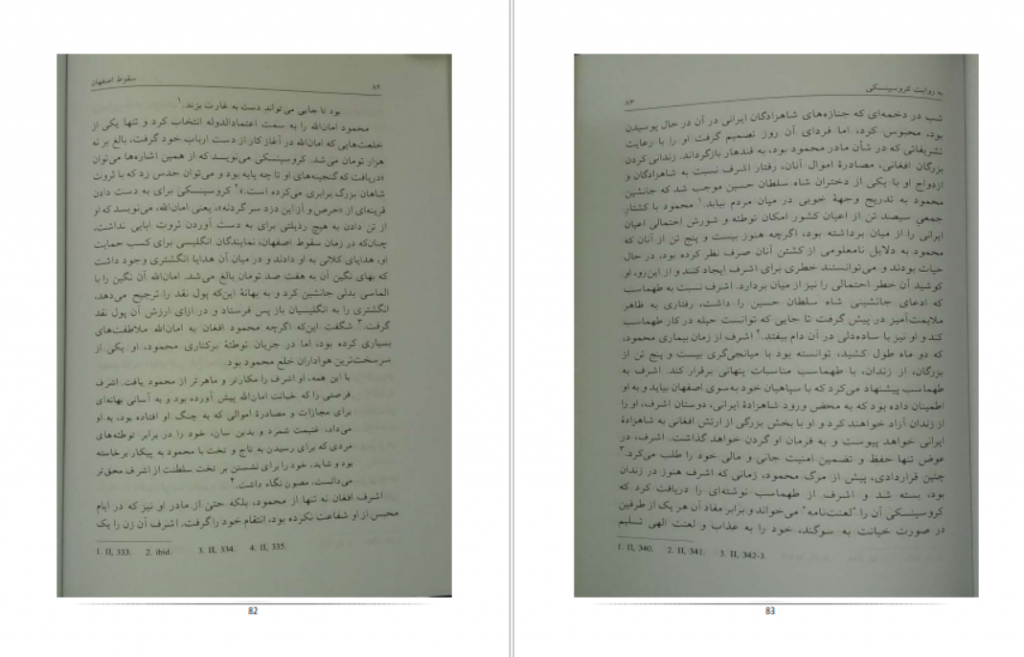 سقوط اصفهان
۸۲
بود تا جایی می‌تواند دست به غارت بزند.۱
محمود امان‌الله را به سمت اعتمادالدوله انتخاب کرد و تنها یکی از
خلعت‌هایی که امان‌الله در آغاز کار از دست ارباب خود گرفت، بالغ بر نه
هزار تومان می‌شد. کروسینسکی می‌نویسد که از همین اشاره‌ها می‌توان
«دریافت که گنجینه‌های او تا چه پایه بود و می‌توان حدس زد که با ثروت
شاهان بزرگ برابری می‌کرده است.»۲ کروسینسکی برای به دست دادن
قرینه‌ای از «حرص و آز این دزد سر گردنه»، یعنی امان‌الله، می‌نویسد که او
از تن دادن به هیچ رذیلتی برای به دست آوردن ثروت ابایی نداشت،
چنان‌که در زمان سقوط اصفهان، نمایندگان انگلیسی برای کسب حمایت
او، هدایای کلانی به او دادند و در میان آن هدایا انگشتری وجود داشت
که بهای نگین آن به هفت صد تومان بالغ می‌شد. امان‌الله آن نگین را با
الماسی بدلی جانشین کرد و به بهانهٔ این‌که پول نقد را ترجیح می‌دهد،
انگشتری را به انگلیسیان باز پس فرستاد و در ازای ارزش آن پول نقد
گرفت.۳ شگفت این‌که اگرچه محمود افغان به امان‌الله ملاطفت‌های
بسیاری کرده بود، اما در جریان توطئهٔ برکناری محمود، او یکی از
سرسخت‌ترین هواداران خلع محمود بود.
با این همه، او اشرف را مکارتر و ماهرتر از محمود یافت. اشرف
فرصتی را که خیانت امان‌الله پیش آورده بود و به آسانی بهانه‌ای
برای مجازات و مصادرهٔ اموالی که به چنگ او افتاده بود، به او
می‌داد، غنیمت شمرد و بدین سان، خود را در برابر توطئه‌های
مردی که برای رسیدن به تاج و تخت با محمود به پیکار برخاسته
بود و شاید، خود را برای نشستن بر تخت سلطنت از اشرف محق‌تر
می‌دانست، مصون نگاه داشت.۴
اشرف افغان نه تنها از محمود، بلکه حتی از مادر او نیز که در ایام
محبس از او شفاعت نکرده بود، انتقام خود را گرفت. اشرف آن زن را یک
1. II, 333. 2. ibid. 3. II, 334. 4. II, 335.
82
به روایت کروسینسکی
۸۳
شب در دخمه‌ای که جنازه‌های شاهزادگان ایرانی در آن در حال پوسیدن
بود، محبوس کرد، اما فردای آن روز تصمیم گرفت او را با رعایت
تشریفاتی که در شأن مادر محمود بود، به قندهار بازگرداند. زندانی کردن
بزرگان افغانی، مصادرهٔ اموال آنان، رفتار اشرف نسبت به شاهزادگان و
ازدواج او با یکی از دختران شاه سلطان حسین موجب شد که جانشین
محمود به تدریج وجههٔ خوبی در میان مردم بیابد.۱ محمود با کشتار
جمعی سیصد تن از اعیان کشور امکان توطئه و شورش احتمالی اعیان
ایرانی را از میان برداشته بود، اگرچه هنوز بیست و پنج تن از آنان که
محمود به دلایل نامعلومی از کشتن آنان صرف نظر کرده بود، در حال
حیات بودند و می‌توانستند خطری برای اشرف ایجاد کنند و از این‌رو، او
کوشید آن خطر احتمالی را نیز از میان بردارد. اشرف نسبت به طهماسب
که ادعای جانشینی شاه سلطان حسین را داشت، رفتاری به ظاهر
ملایمت‌آمیز در پیش گرفت تا جایی که توانست حیله در کار طهماسب
کند و او نیز با ساده‌دلی در آن دام بیفتد.۲ اشرف از زمان بیماری محمود،
که دو ماه طول کشید، توانسته بود با میانجی‌گری بیست و پنج تن از
بزرگان، از زندان، با طهماسب مناسبات پنهانی برقرار کند. اشرف به
طهماسب پیشنهاد می‌کرد که با سپاهیان خود به‌سوی اصفهان بیاید و به او
اطمینان داده بود که به محض ورود شاهزادهٔ ایرانی، دوستان اشرف، او را
از زندان آزاد خواهند کرد و او با بخش بزرگی از ارتش افغانی به شاهزادهٔ
ایرانی خواهد پیوست و به فرمان او گردن خواهد گذاشت. اشرف، در
عوض تنها حفظ و تضمین امنیت جانی و مالی خود را طلب می‌کرد.۳
چنین قراردادی، پیش از مرگ محمود، زمانی که اشرف هنوز در زندان
بود، بسته شد و اشرف از طهماسب نوشته‌ای را دریافت کرد که
کروسینسکی آن را "لعنت‌نامه" می‌خواند و برابر مفاد آن هر یک از طرفین
در صورت خیانت به سوگند، خود را به عذاب و لعنت الهی تسلیم
1. II, 340. 2. II, 341. 3. II, 342-3.
83